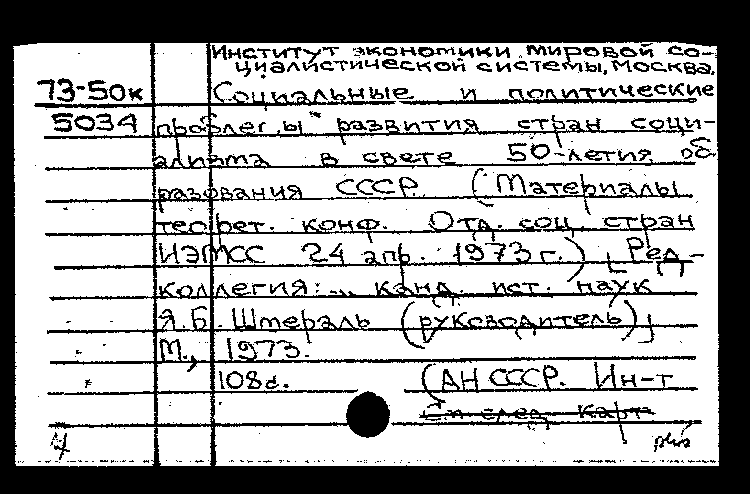 Институт экономики мировой со-
циалистической системы, Москва.
73-50к Социальные и политические
5034 проблемы развития стран соци-
ализма в свете 50-летия об-
разования СССР. (Материалы
теорет. конф. Отд. соц. стран
ИЭМСС 24 апр. 1973 г.) [Ред-
коллегия: ... канд. ист. наук
Я.Б. Штераль (руководитель)]
М., 1973.
108с. (АН СССР. Ин-т
См след карт
4